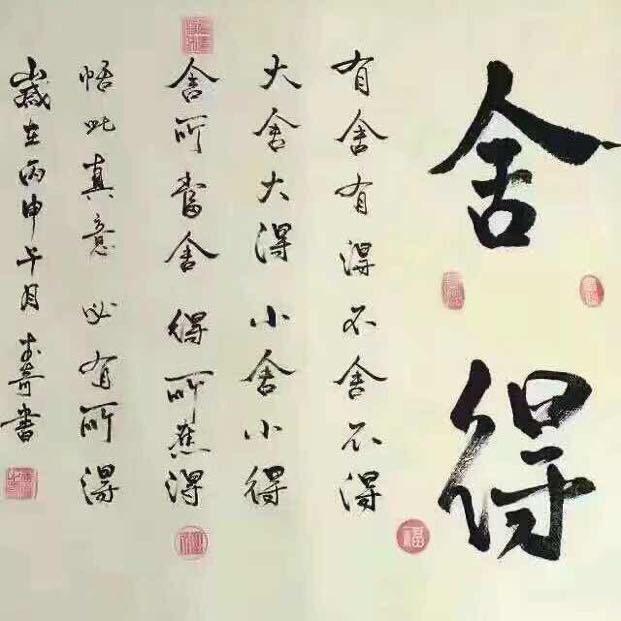 舍得
有舍有得不舍不得
大舍大得小舍小得
舍所當舍得所應得
悟此真意必有所得
歲在丙申午月奇書
福